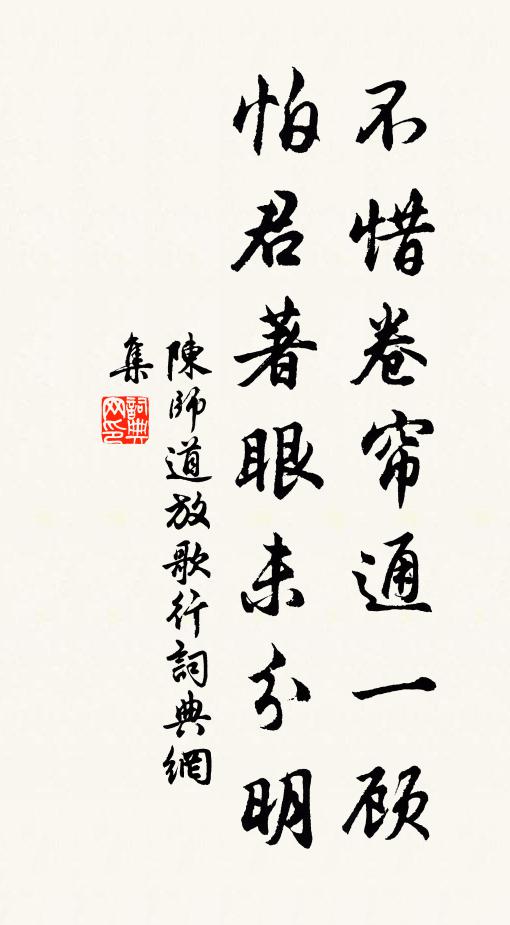 不惜卷帘通一顾
怕君著眼未分明
陳師道放歌行詞典網
集
詞典
网印